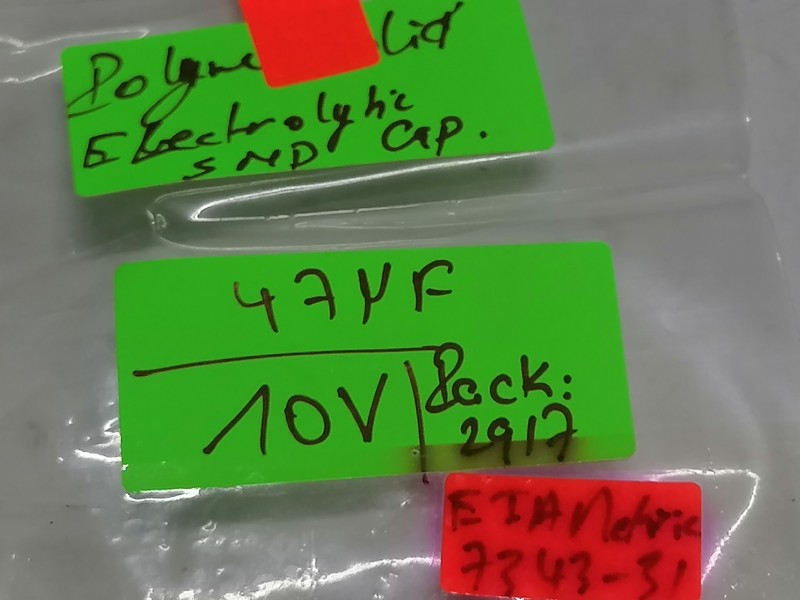 Electrolytic
SMD Cap.
47µF
10V
Pack:
2917
EIA Metric
7343-31